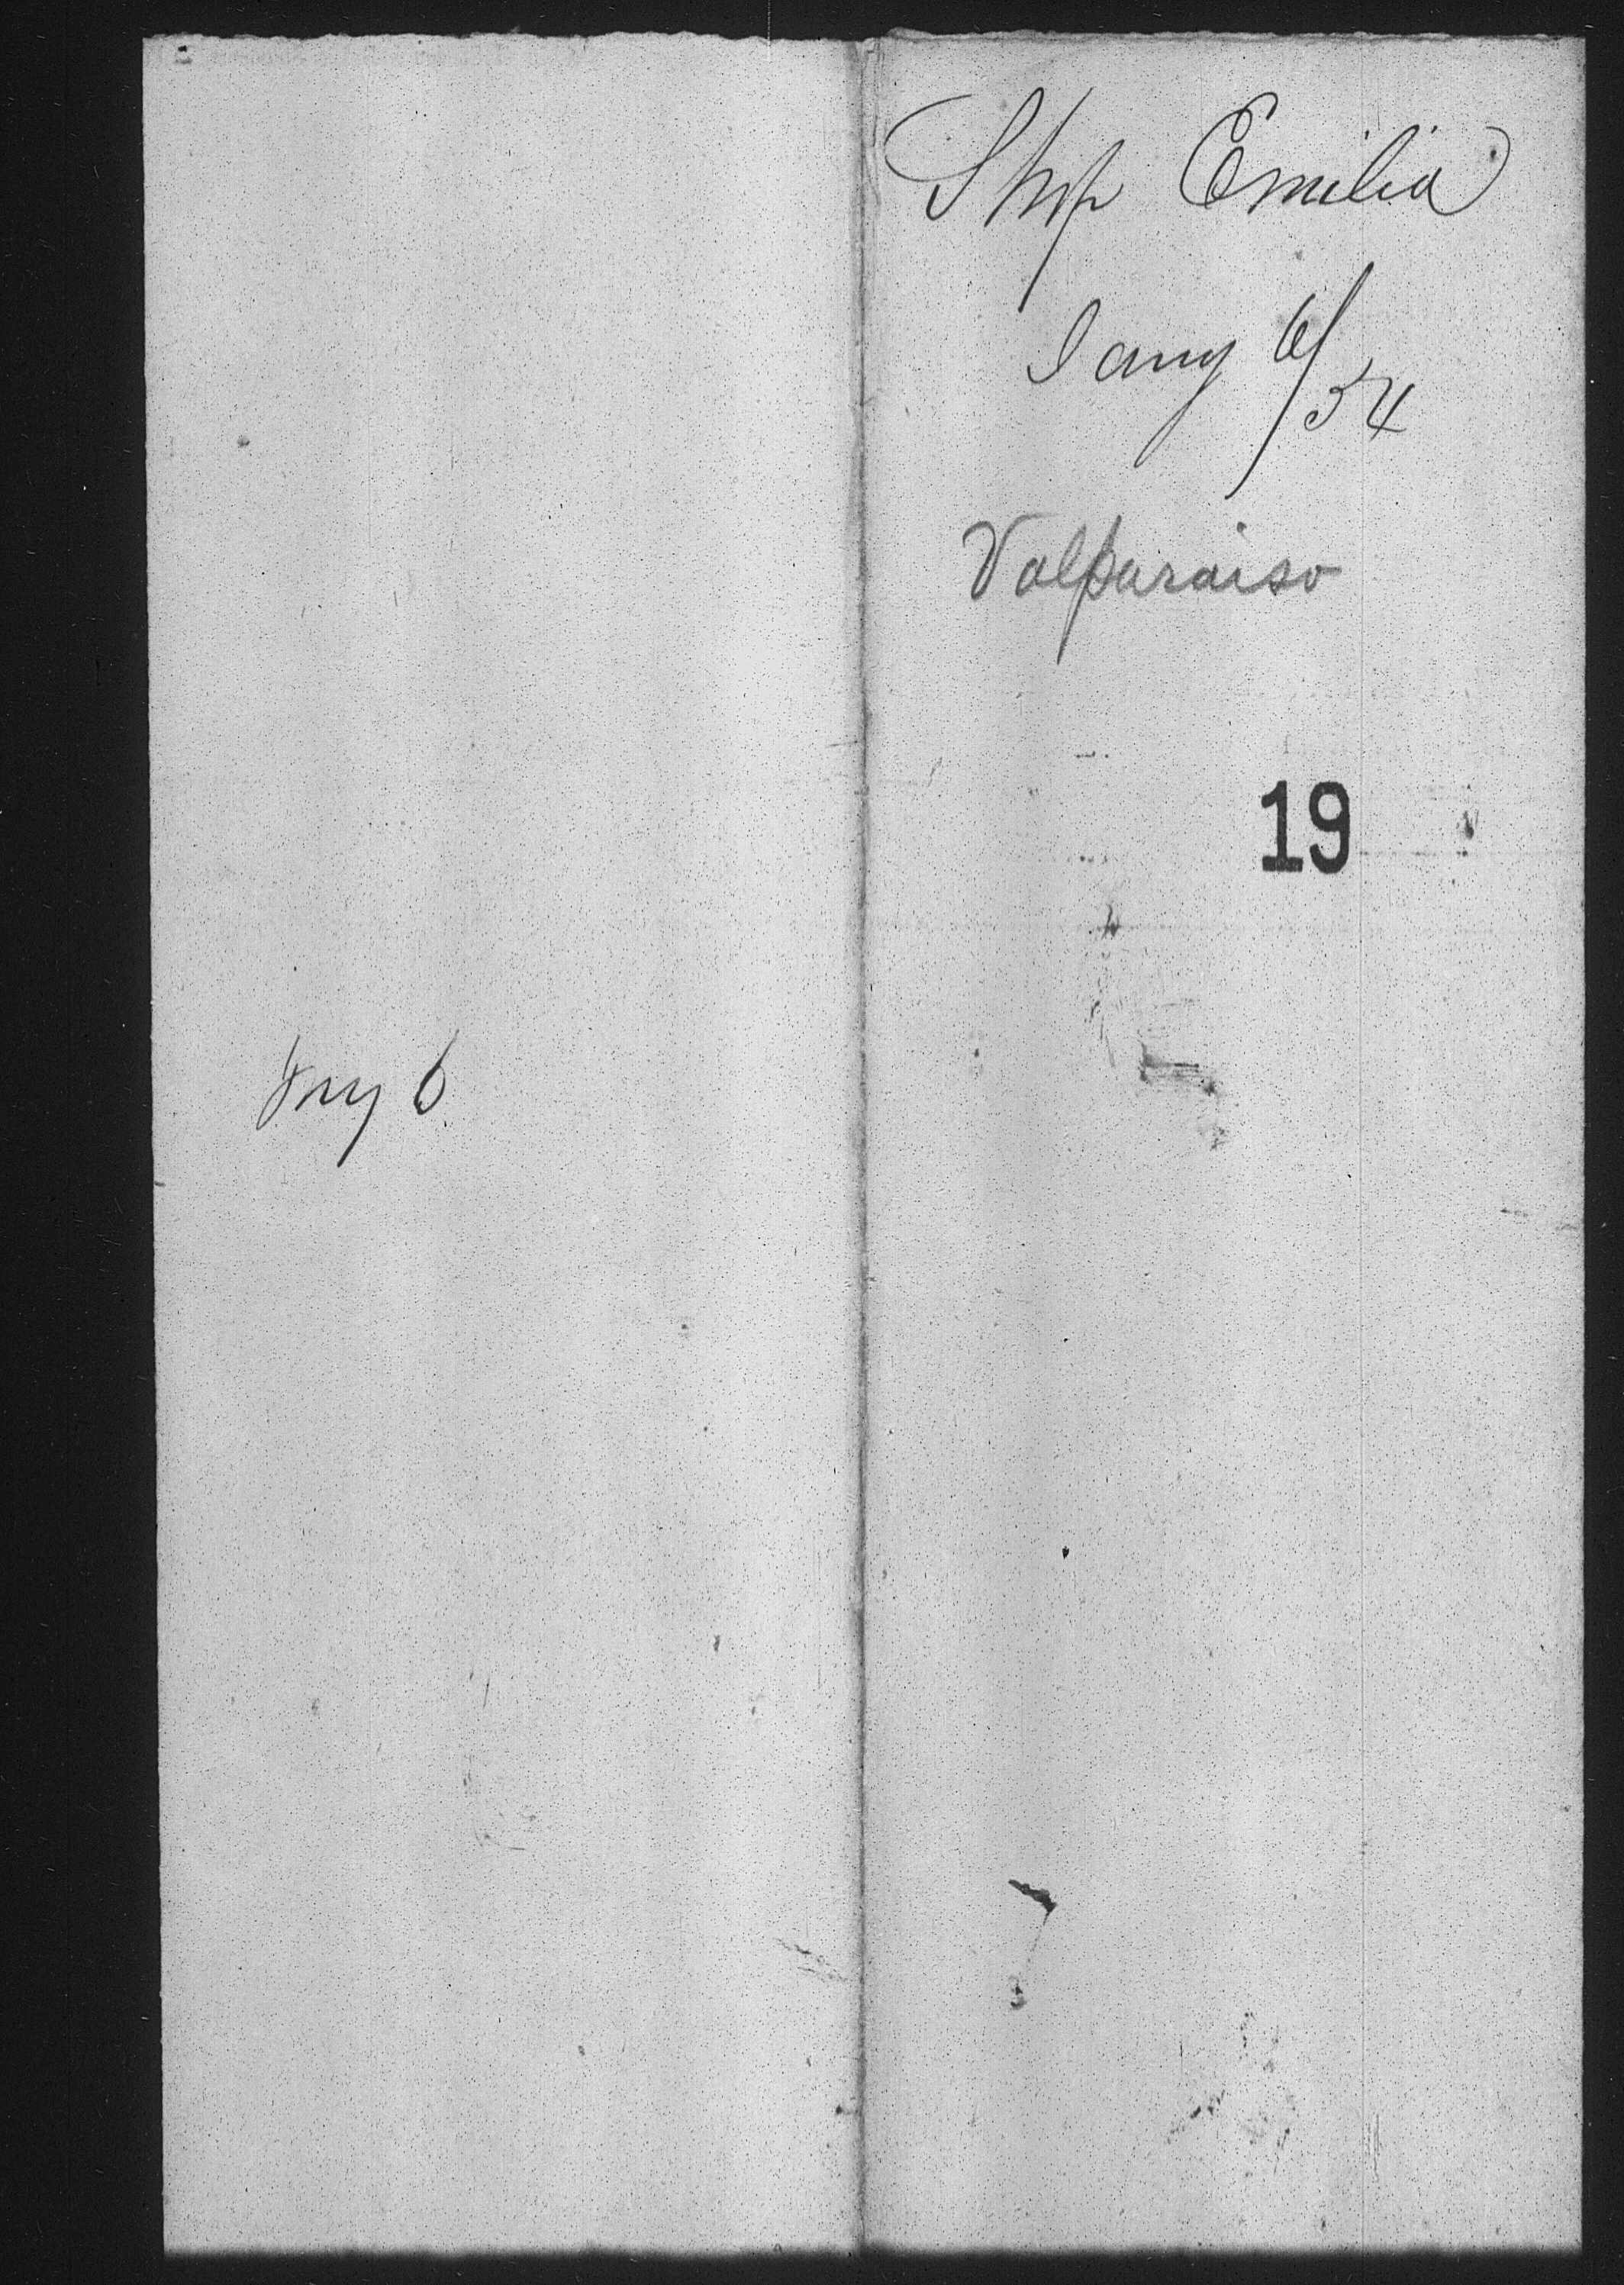 Ship Emilia
Jany 6/54
Valparaiso
19
6